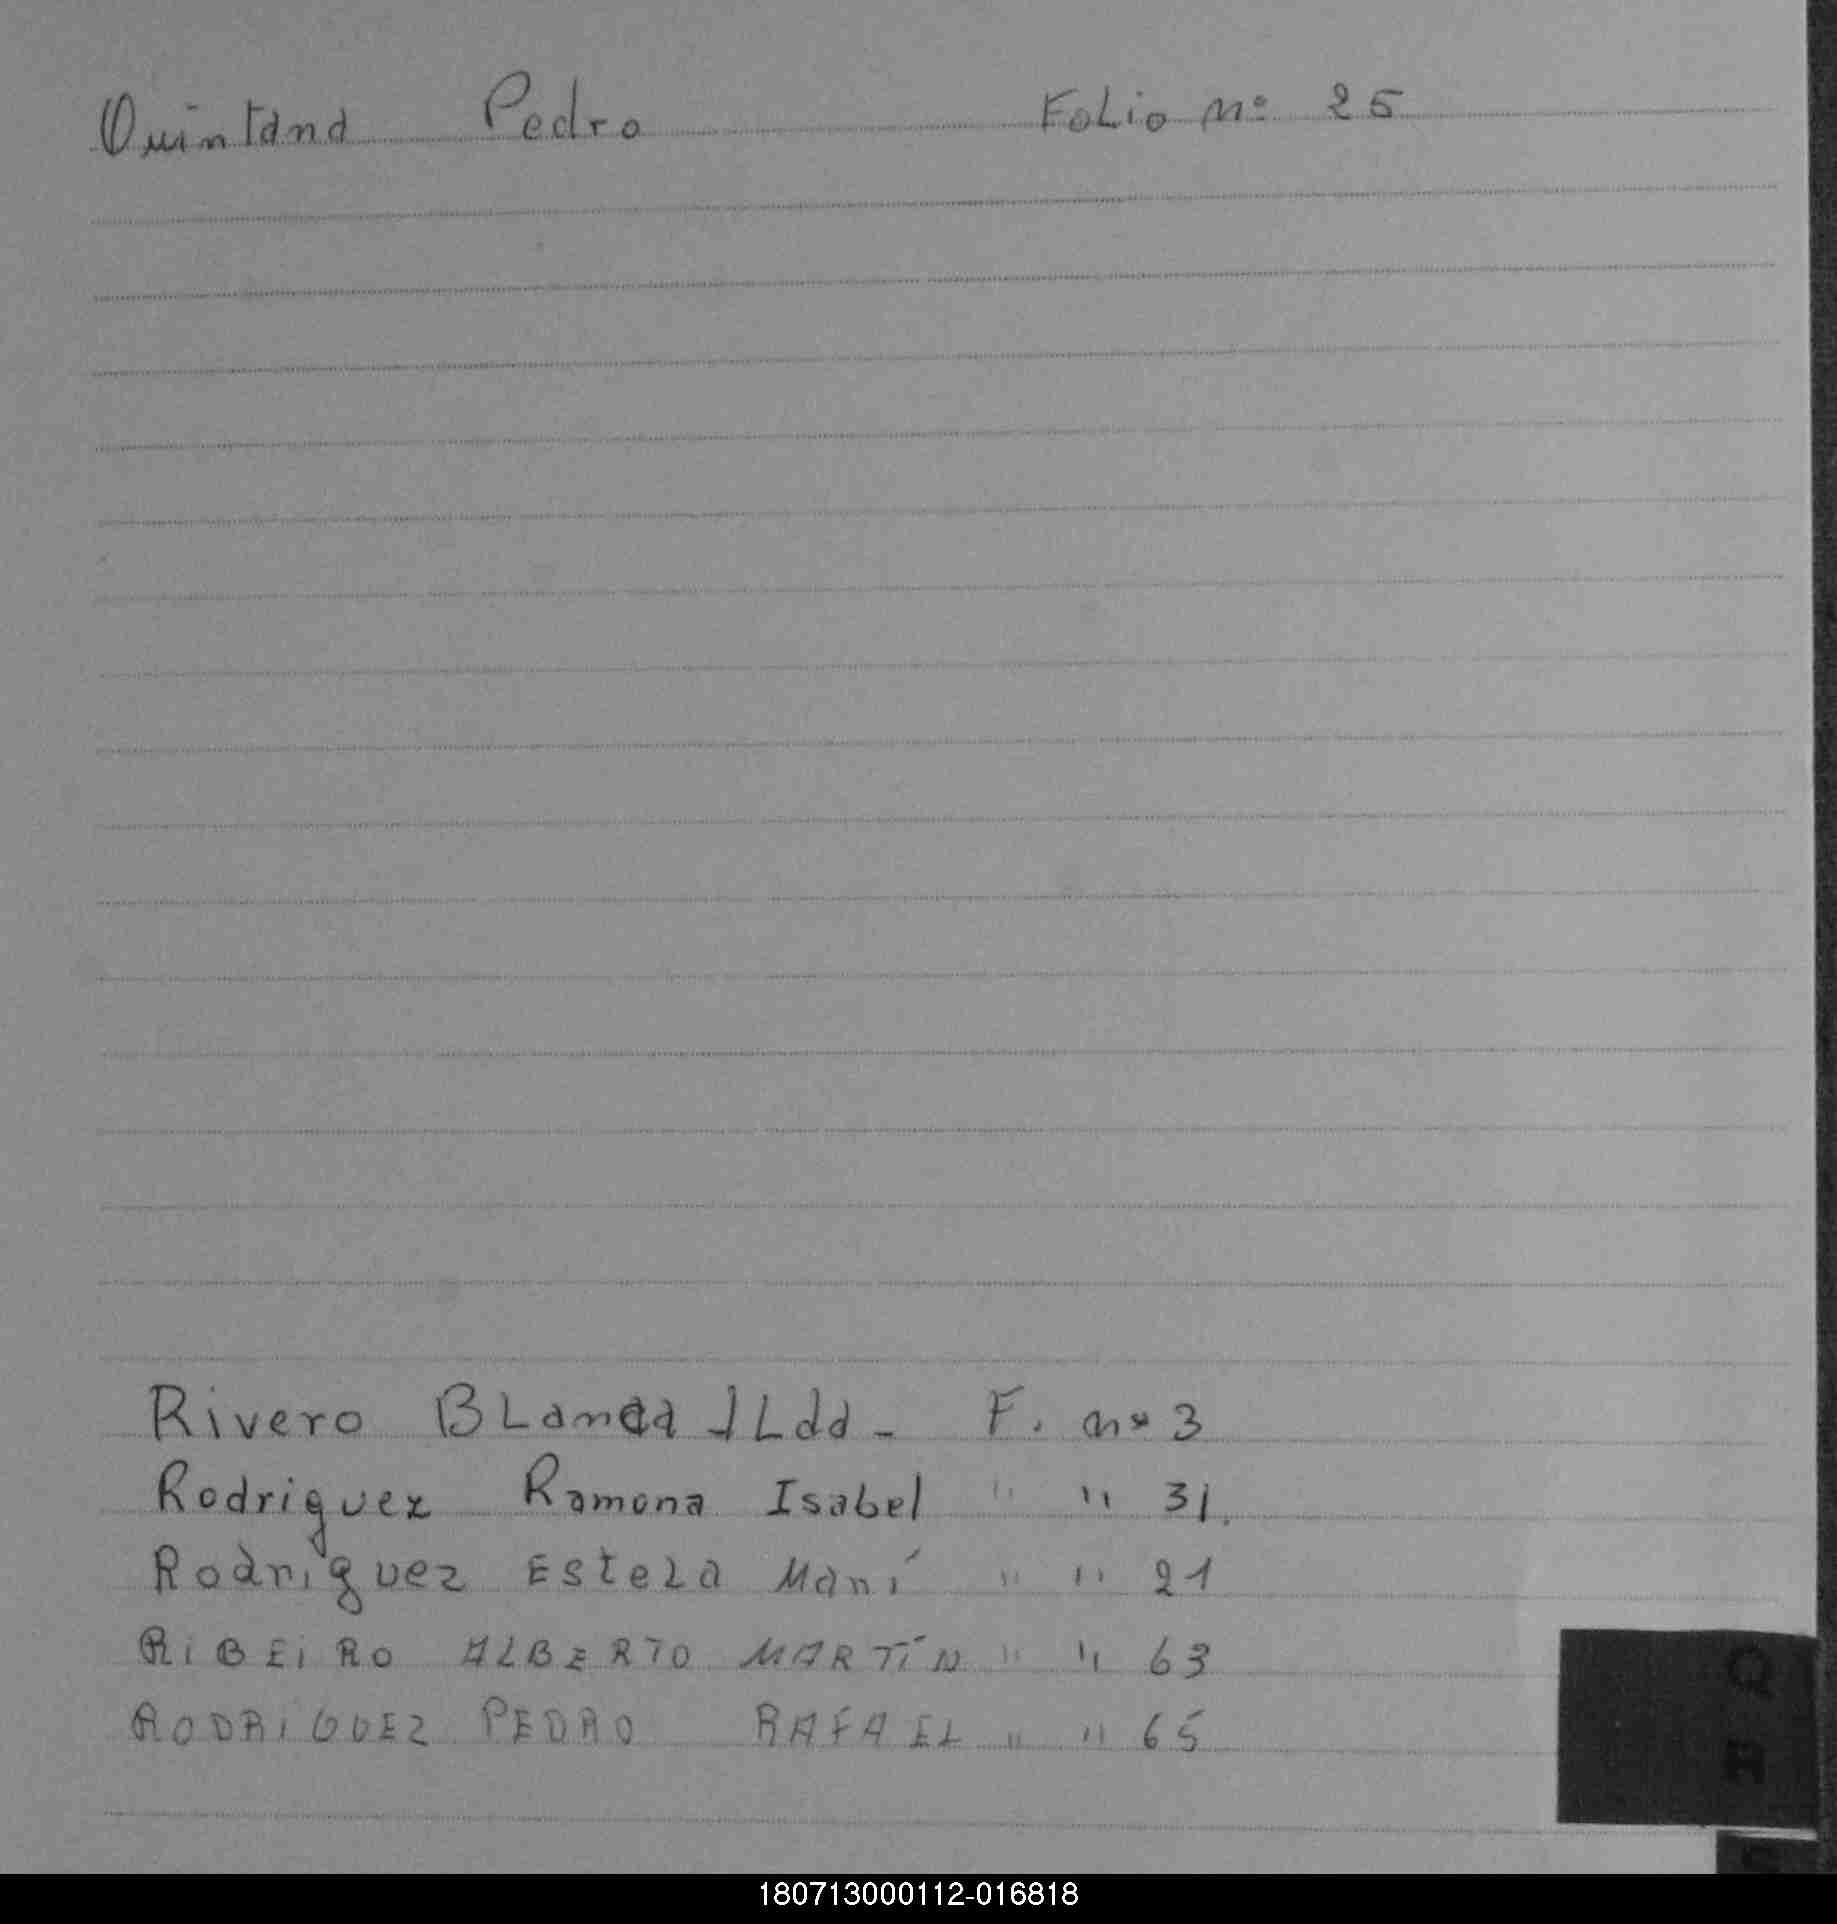 Quintana Pedro Folio nº 25
Rivero BLanca ILda - F. nº 3
Rodriguez Ramona Isabel " " 31.
Rodriguez Estela Mari " " 21
RiBEiRO ALBERTO MARTíN " " 63
RODRiGUEZ PEDRO RAFAEL " " 65
Q
R
180713000112-016818